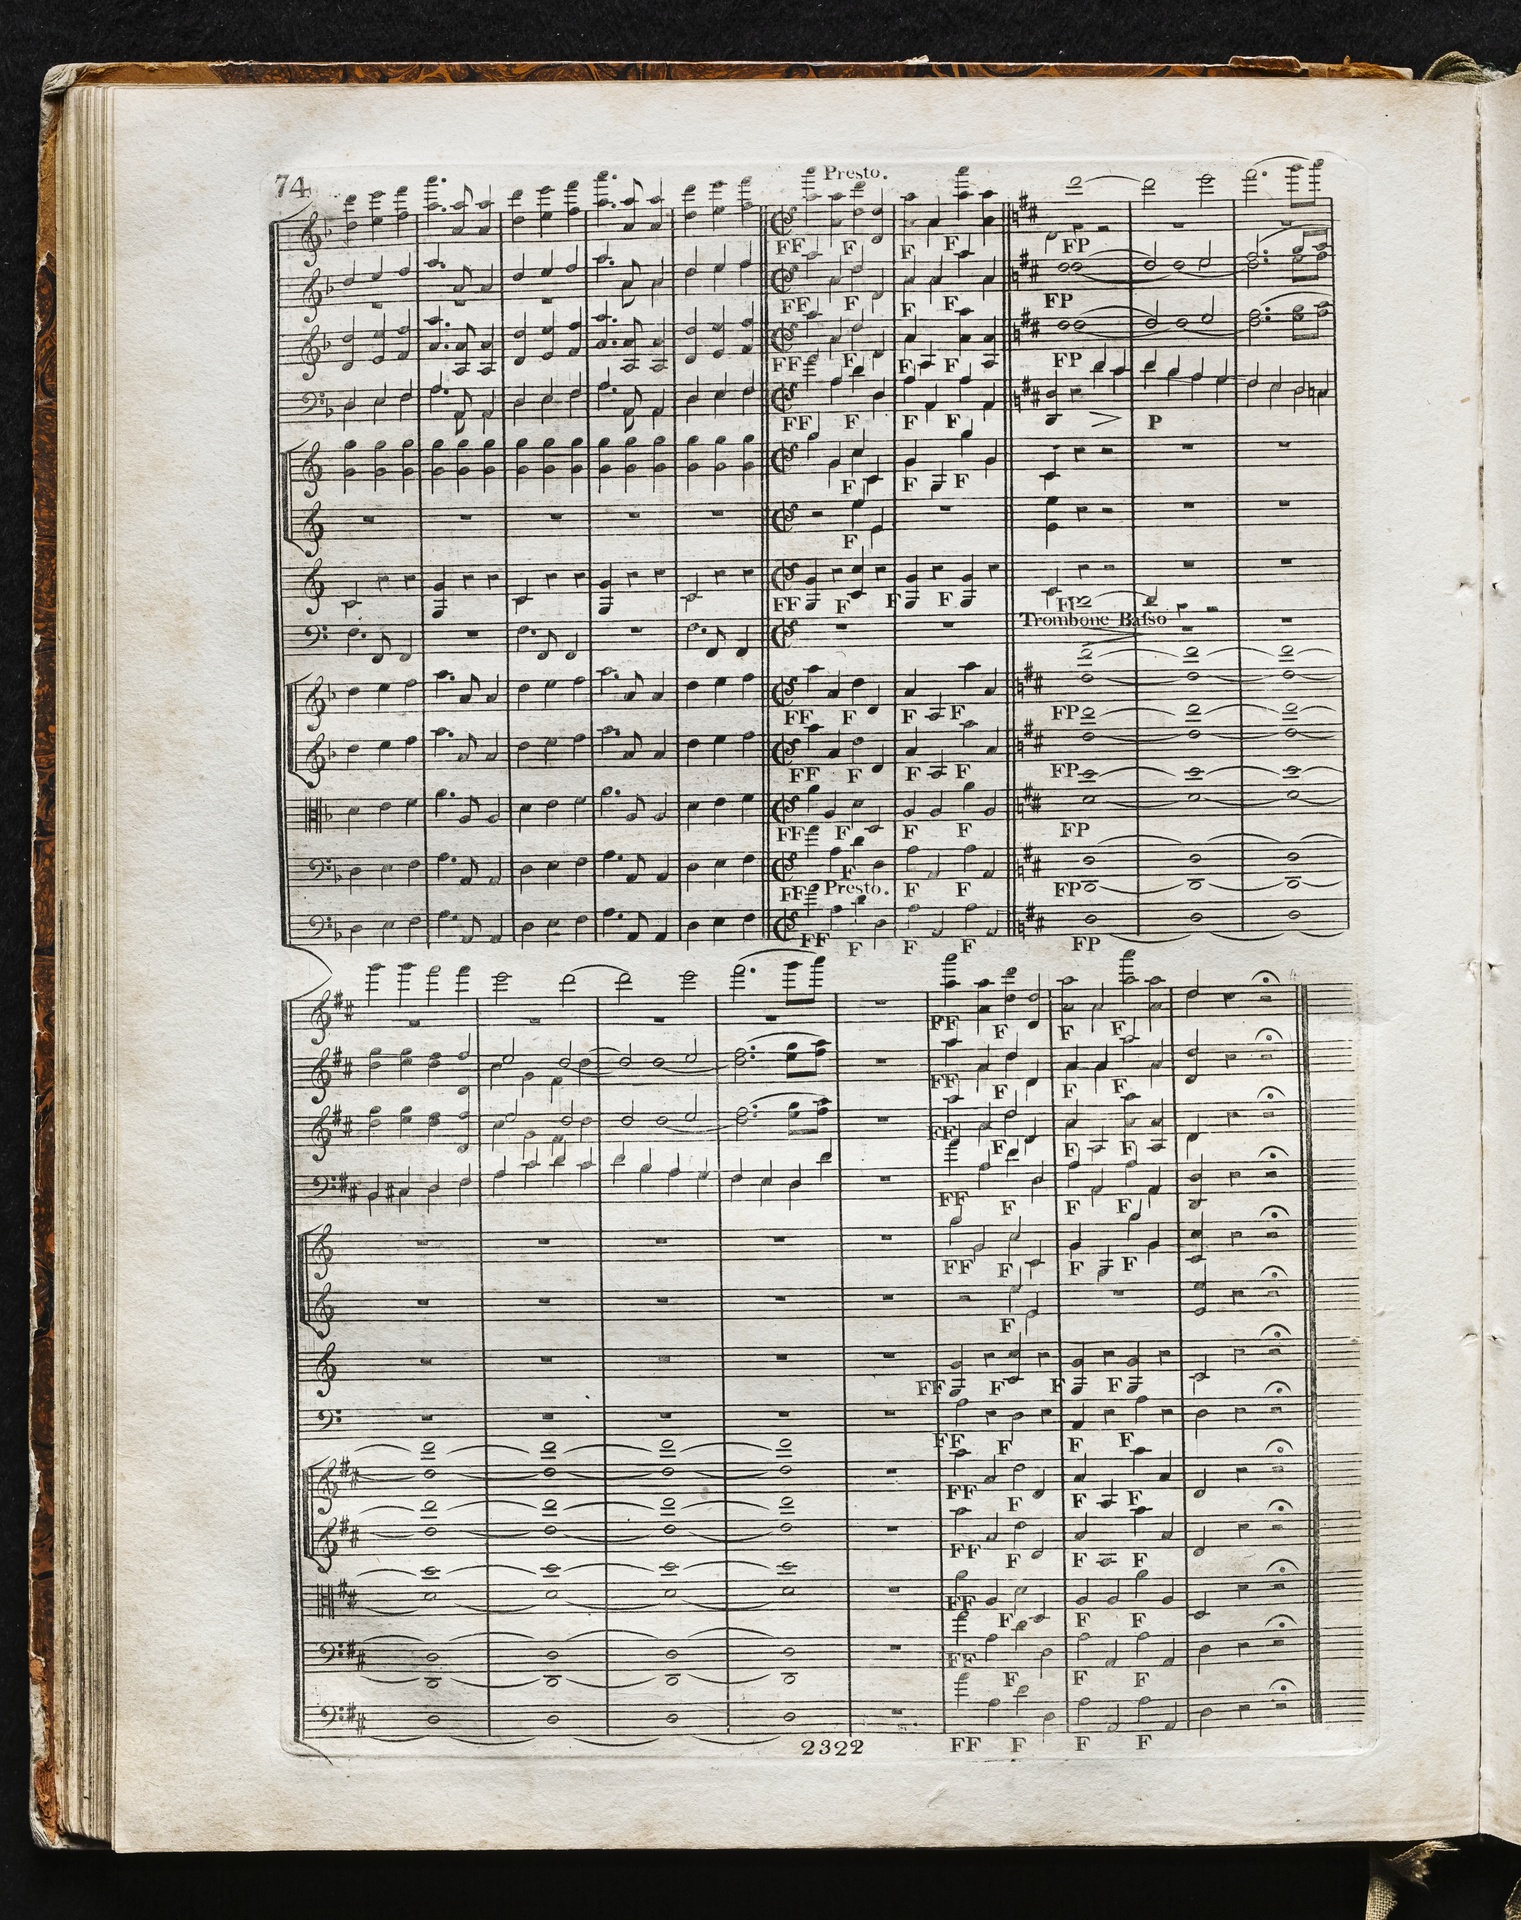 74
Presto.
FF F F F FP
FF F F F FP
FF F F F FP
FF F F F > P
F F F
F
FF F F F FP
Trombone Basso
FF F F F FP
FF F F F FP
FF F F FP
FF F F F FP
Presto.
FF F F F FP
FF F F F
FF F F F
FF F F F
FF F F F
FF F F F
F
FF F F F
FF F F F
FF F F F
FF F F F
FF F F F
FF F F F
FF F F F
2322